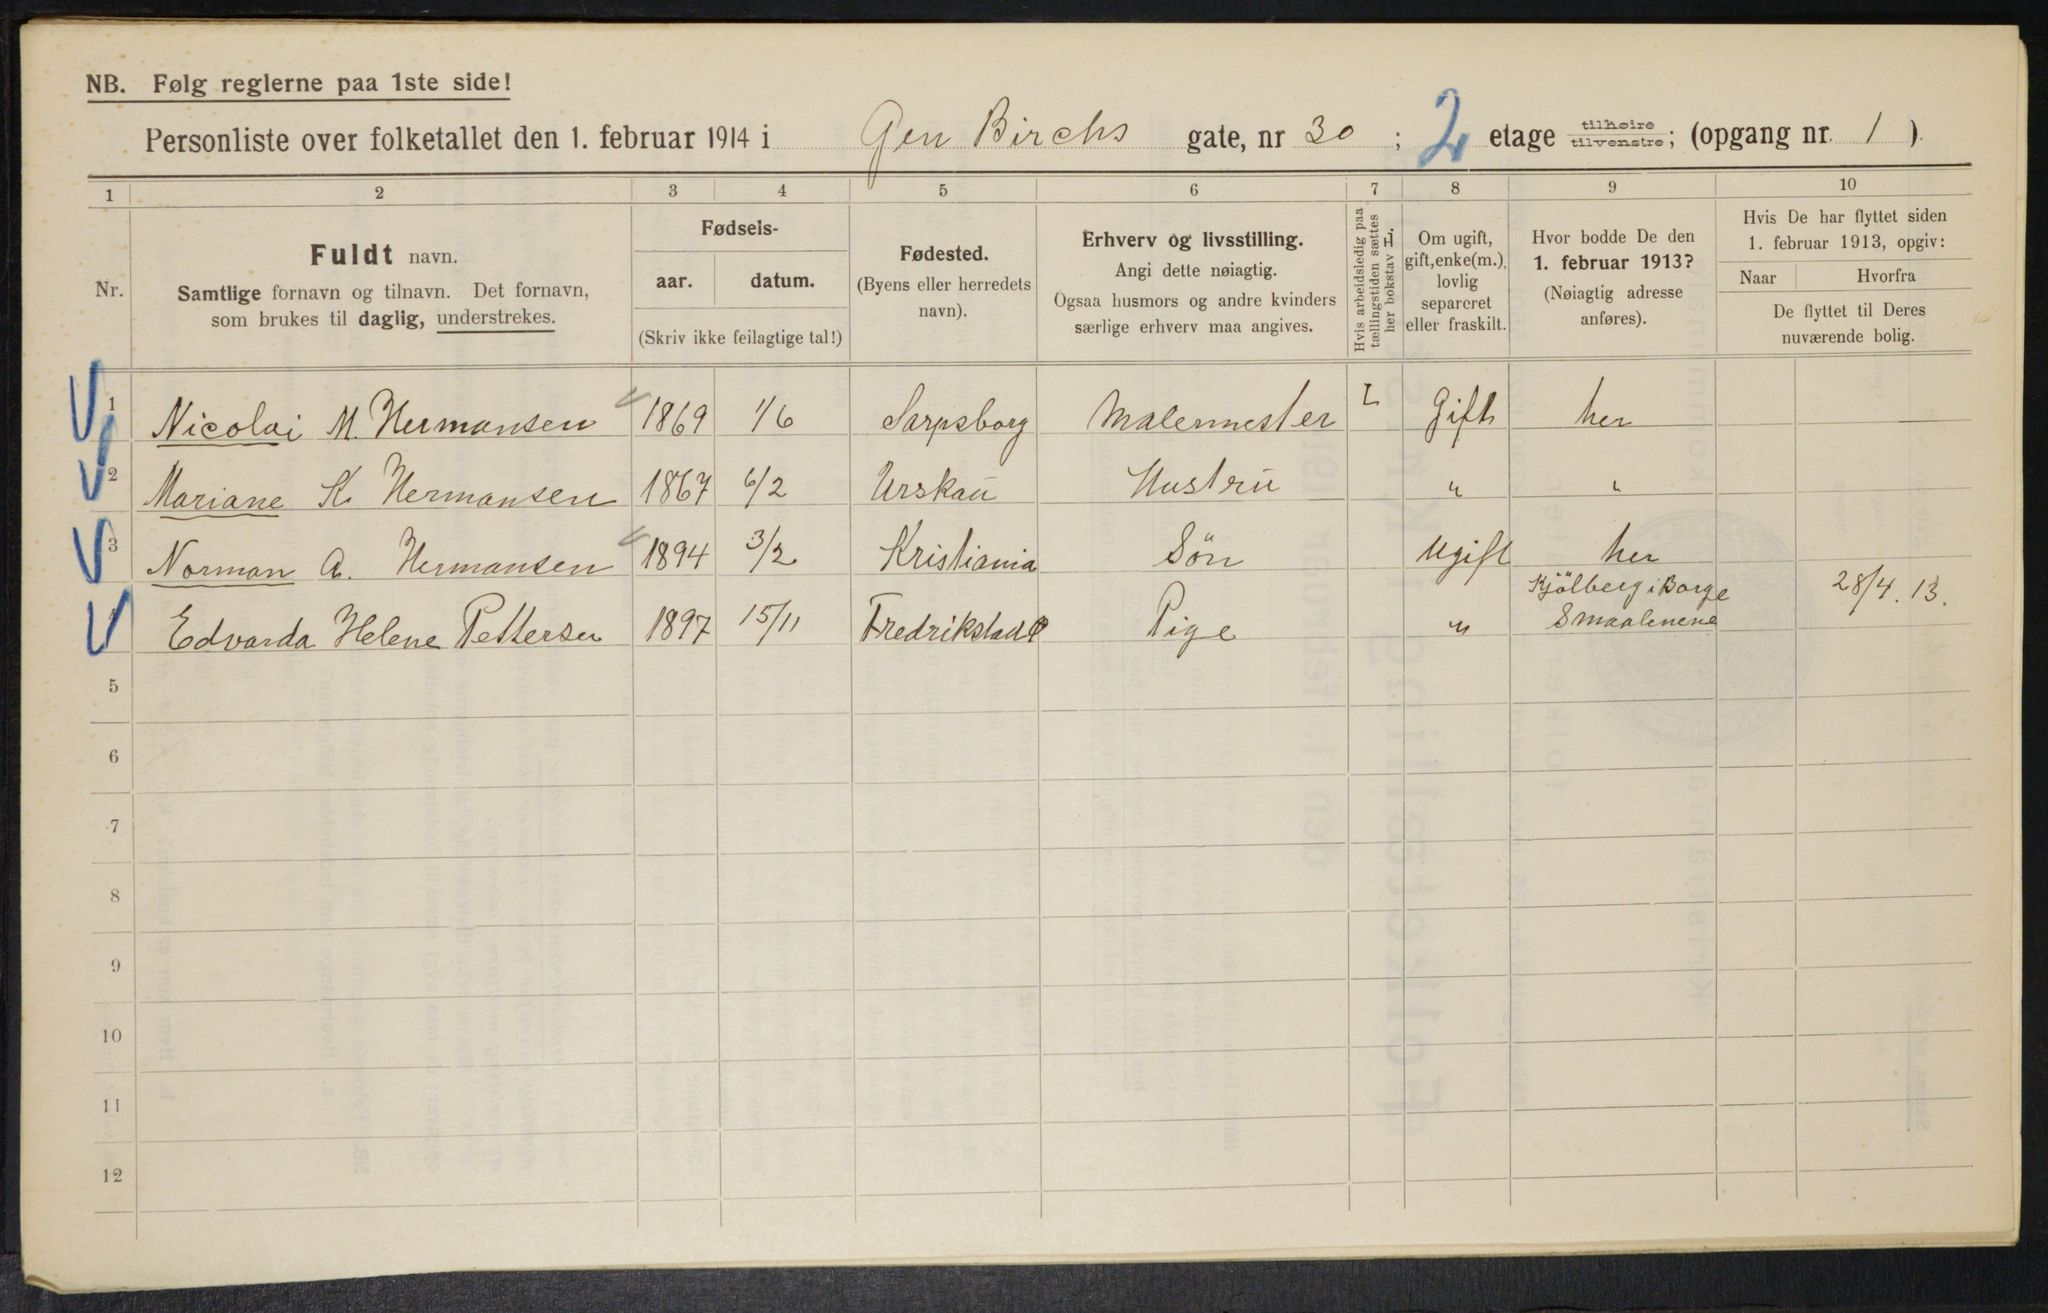 NB. Følg reglerne paa 1ste side!
Personliste over folketallet den 1. februar 1914 i Gen Birchs gate, nr 30 ; 2 etage tilhøire tilvenstre; (opgang nr. 1 ).
1 2 3 4 5 6 7 8 9 10
Nr.
Fuldt navn.
Samtlige fornavn og tilnavn. Det fornavn,
som brukes til daglig, understrekes.
Fødsels-
aar. datum.
(Skriv ikke feilagtige tal!)
Fødested.
(Byens eller herredets
navn).
Erhverv og livsstilling.
Angi dette nøiagtig.
Ogsaa husmors og andre kvinders
særlige erhverv maa angives.
Hvis arbeidsledig paa
tællingstiden sættes
her bokstav L.
Om ugift,
gift, enke(m.),
lovlig
separeret
eller fraskilt.
Hvor bodde De den
1. februar 1913?
(Nøiagtig adresse
anføres).
Hvis De har flyttet siden
1. februar 1913, opgiv:
Naar Hvorfra
De flyttet til Deres
nuværende bolig.
1 Nicolai M. Hermansen 1869 1/6 Sarpsborg Malermester L Gift her
2 Mariane K. Hermansen 1867 6/2 Urskau Hustru " "
3 Norman A. Hermansen 1894 3/2 Kristiania Sön Ugift her
4 Edvarda Helene Pettersen 1897 15/11 Fredrikstad Pige " Kjölberg i Borge 28/4. 13.
Smaalenene
5
6
7
8
9
10
11
12